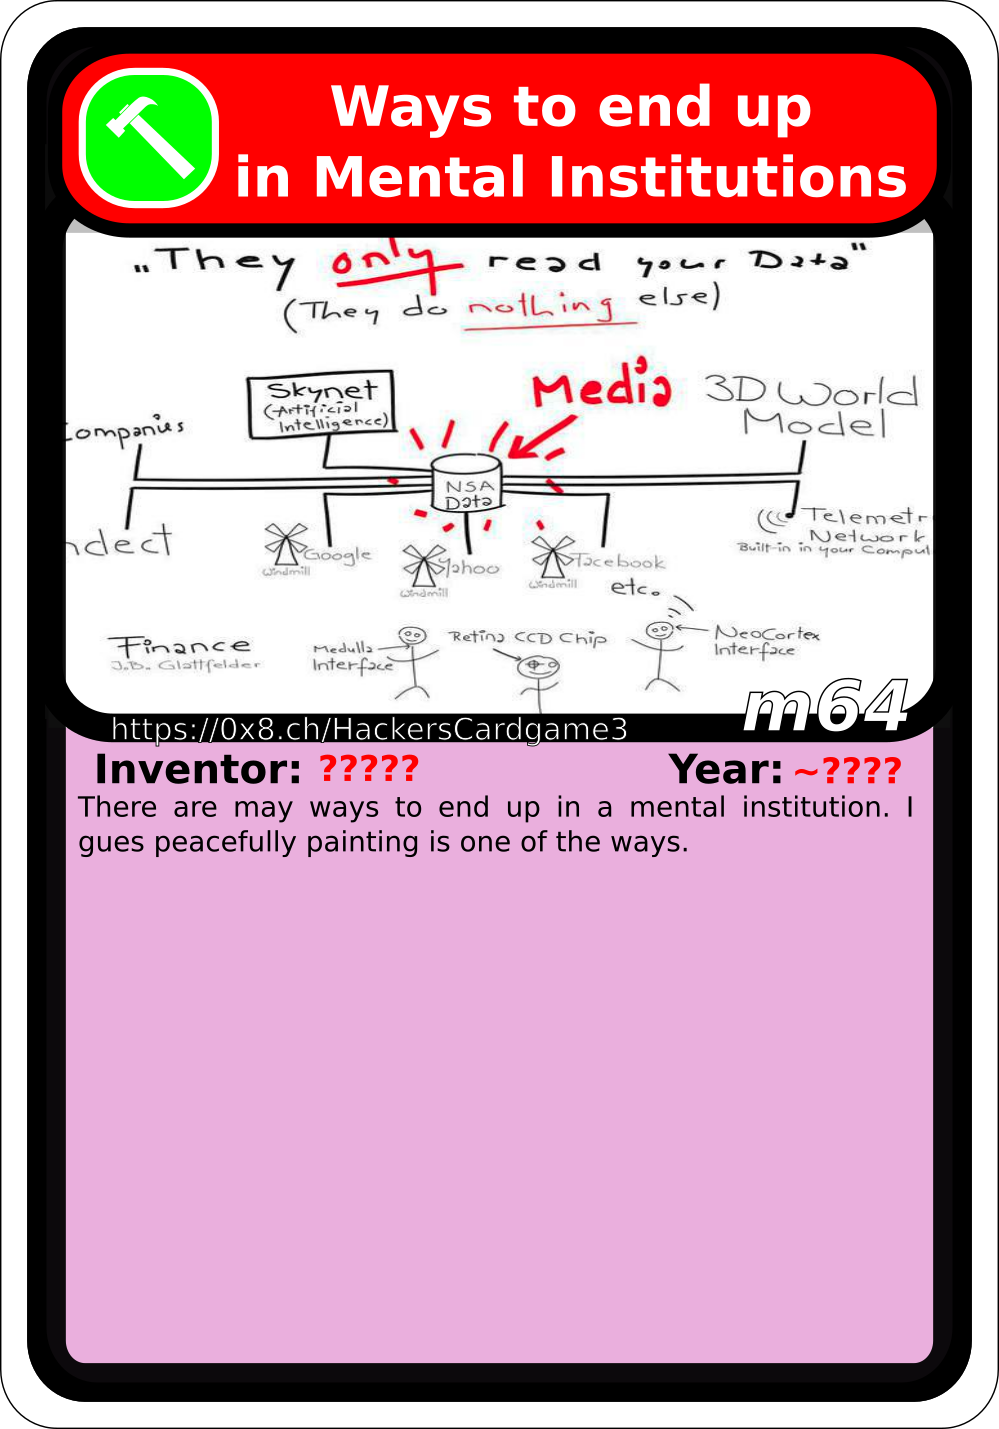 Ways to end up
in Mental Institutions
„They only read your Data"
(They do nothing else)
Media
Skynet
(Artificial
Intelligence)
3D World
Model
ompanies
NSA
Data
ndect
Telemetr
Network
Built-in in your Comput
Google
Windmill
Yahoo
Windmill
Facebook
Windmill
etc.
Finance
J.B. Glattfelder
Medulla
Interface
Retina CCD Chip
NeoCortex
Interface
m64
https://0x8.ch/HackersCardgame3
Inventor: ????? Year: ~????
There are may ways to end up in a mental institution. I
gues peacefully painting is one of the ways.